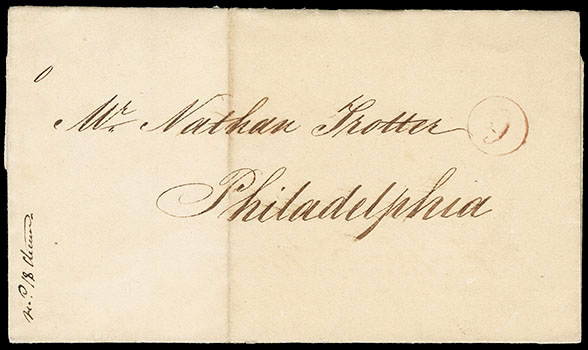 Mr. Nathan Trotter
Philadelphia